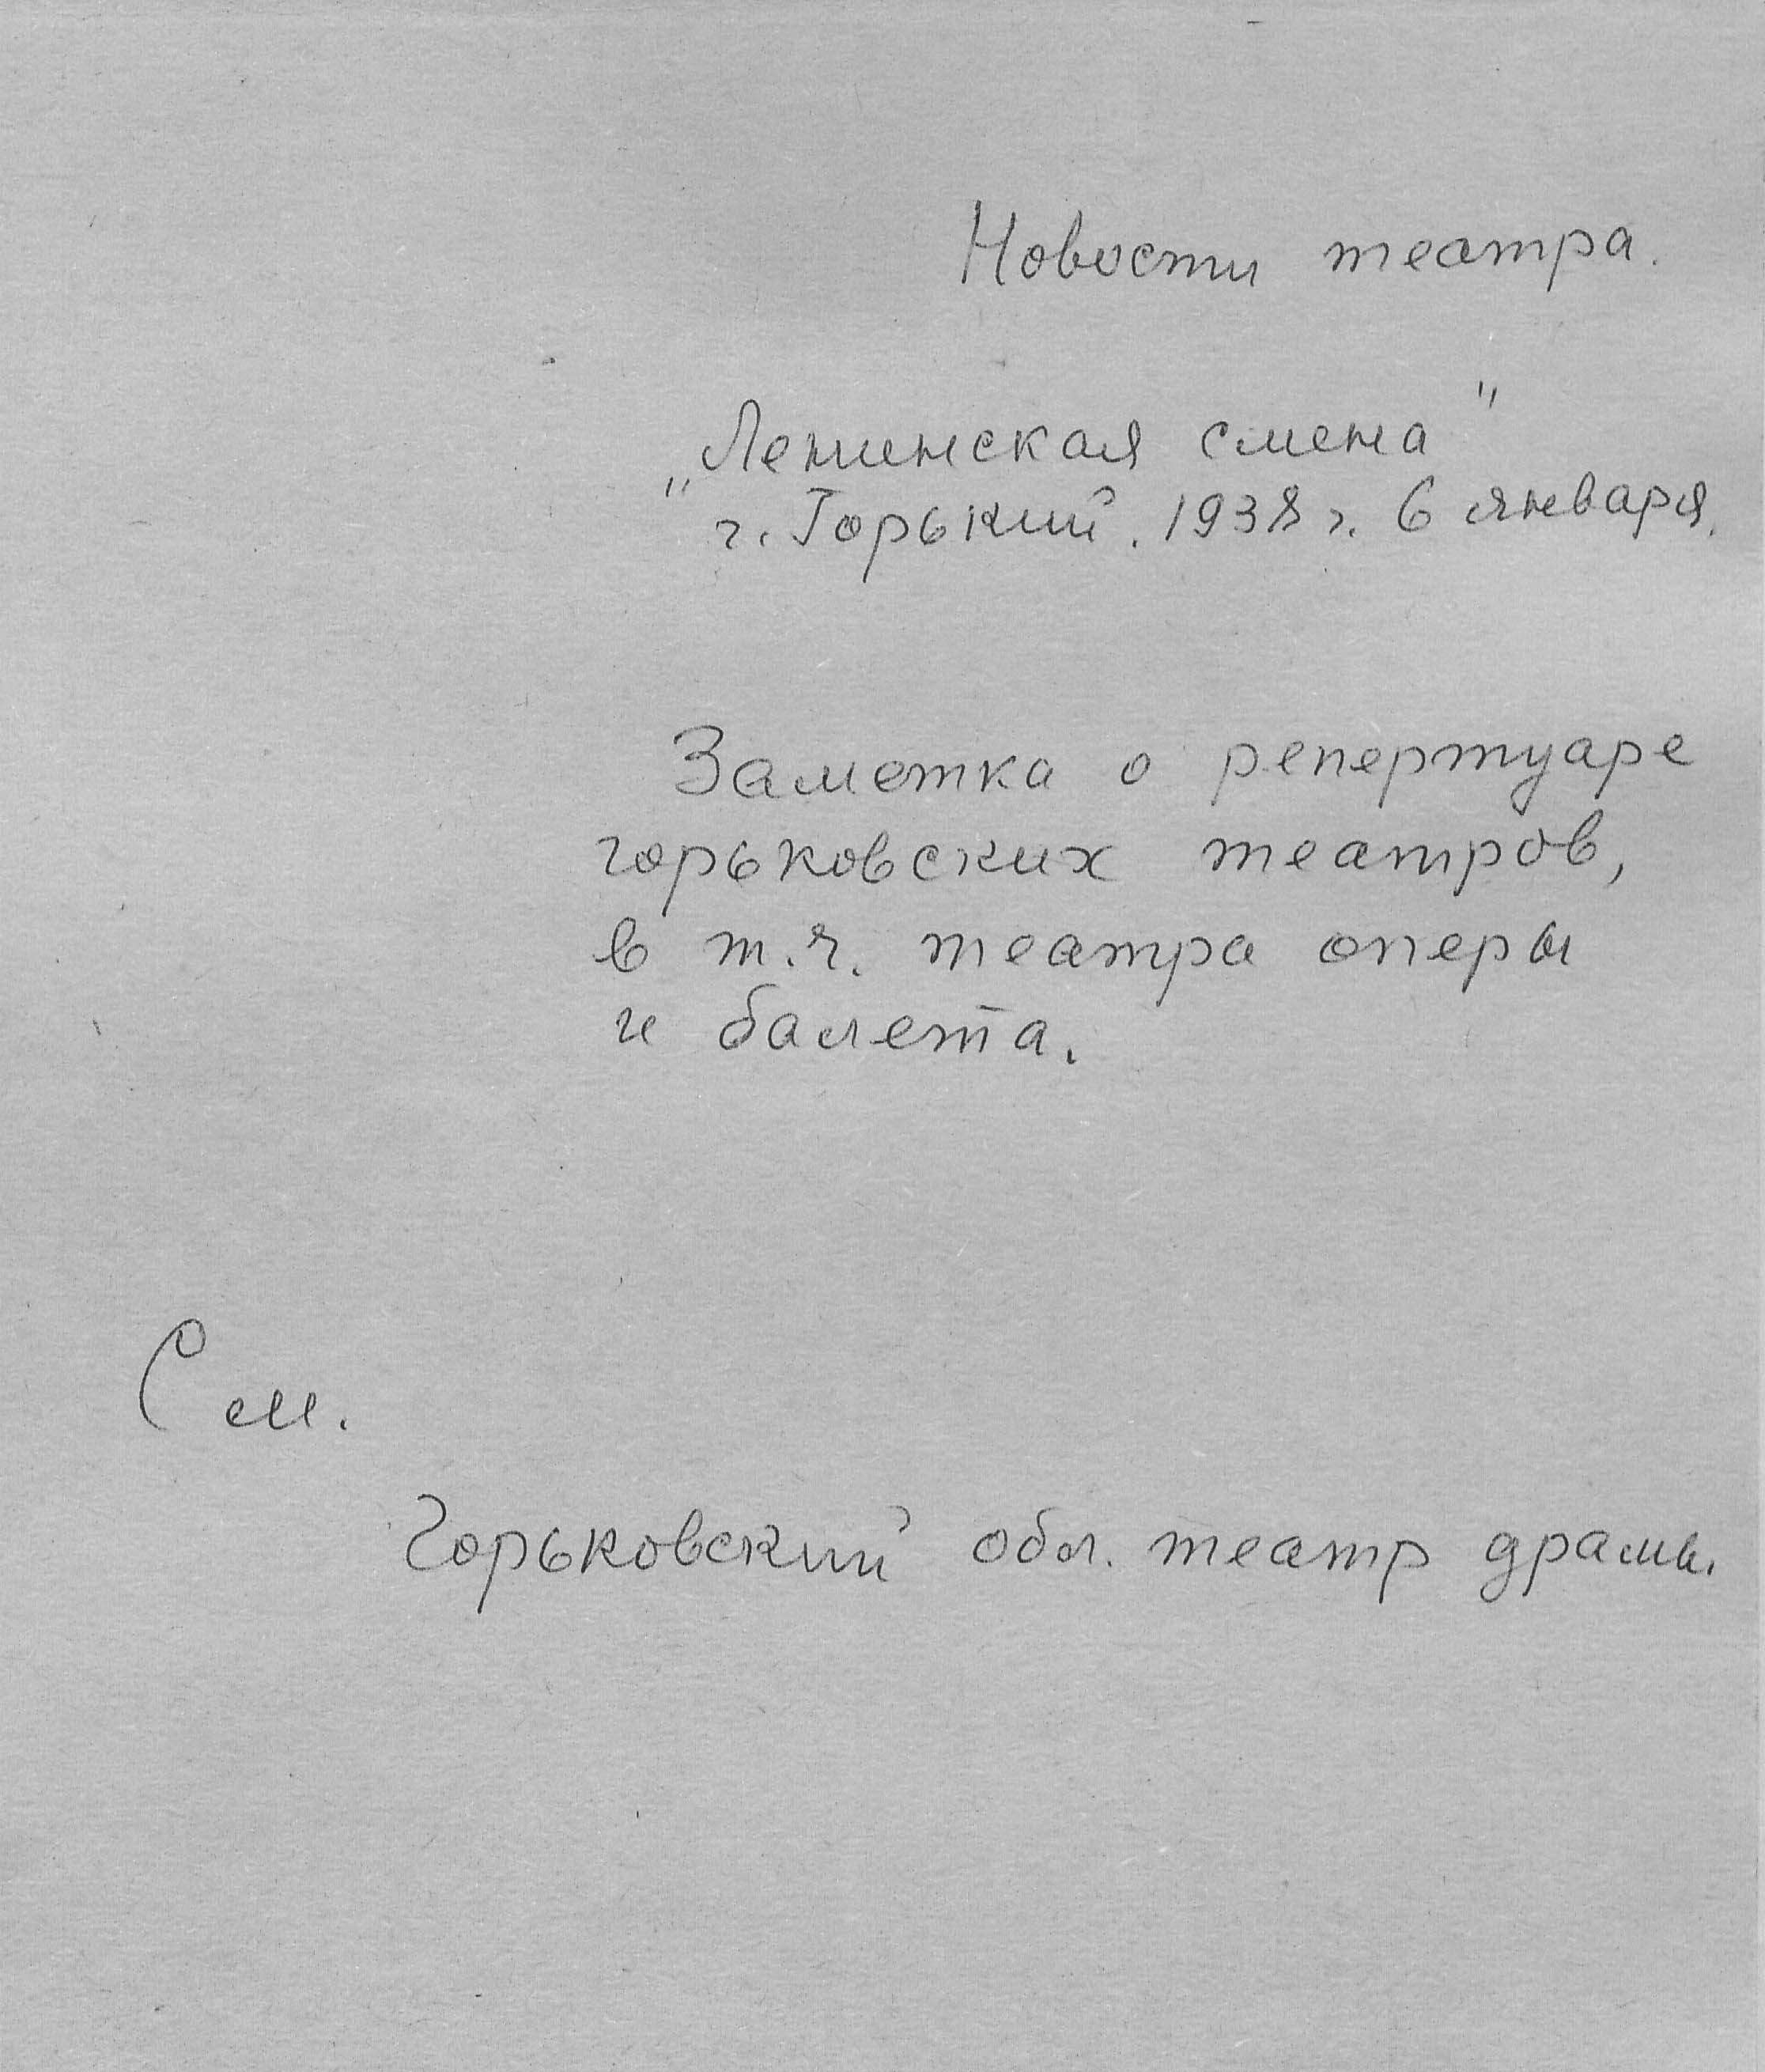 Новости театра.
„Ленинская смена"
г. Горький. 1938 г. 6 января.
Заметка о репертуаре
горьковских театров,
в т.ч. театра оперы
и балета.
См.
Горьковский обл. театр драмы.